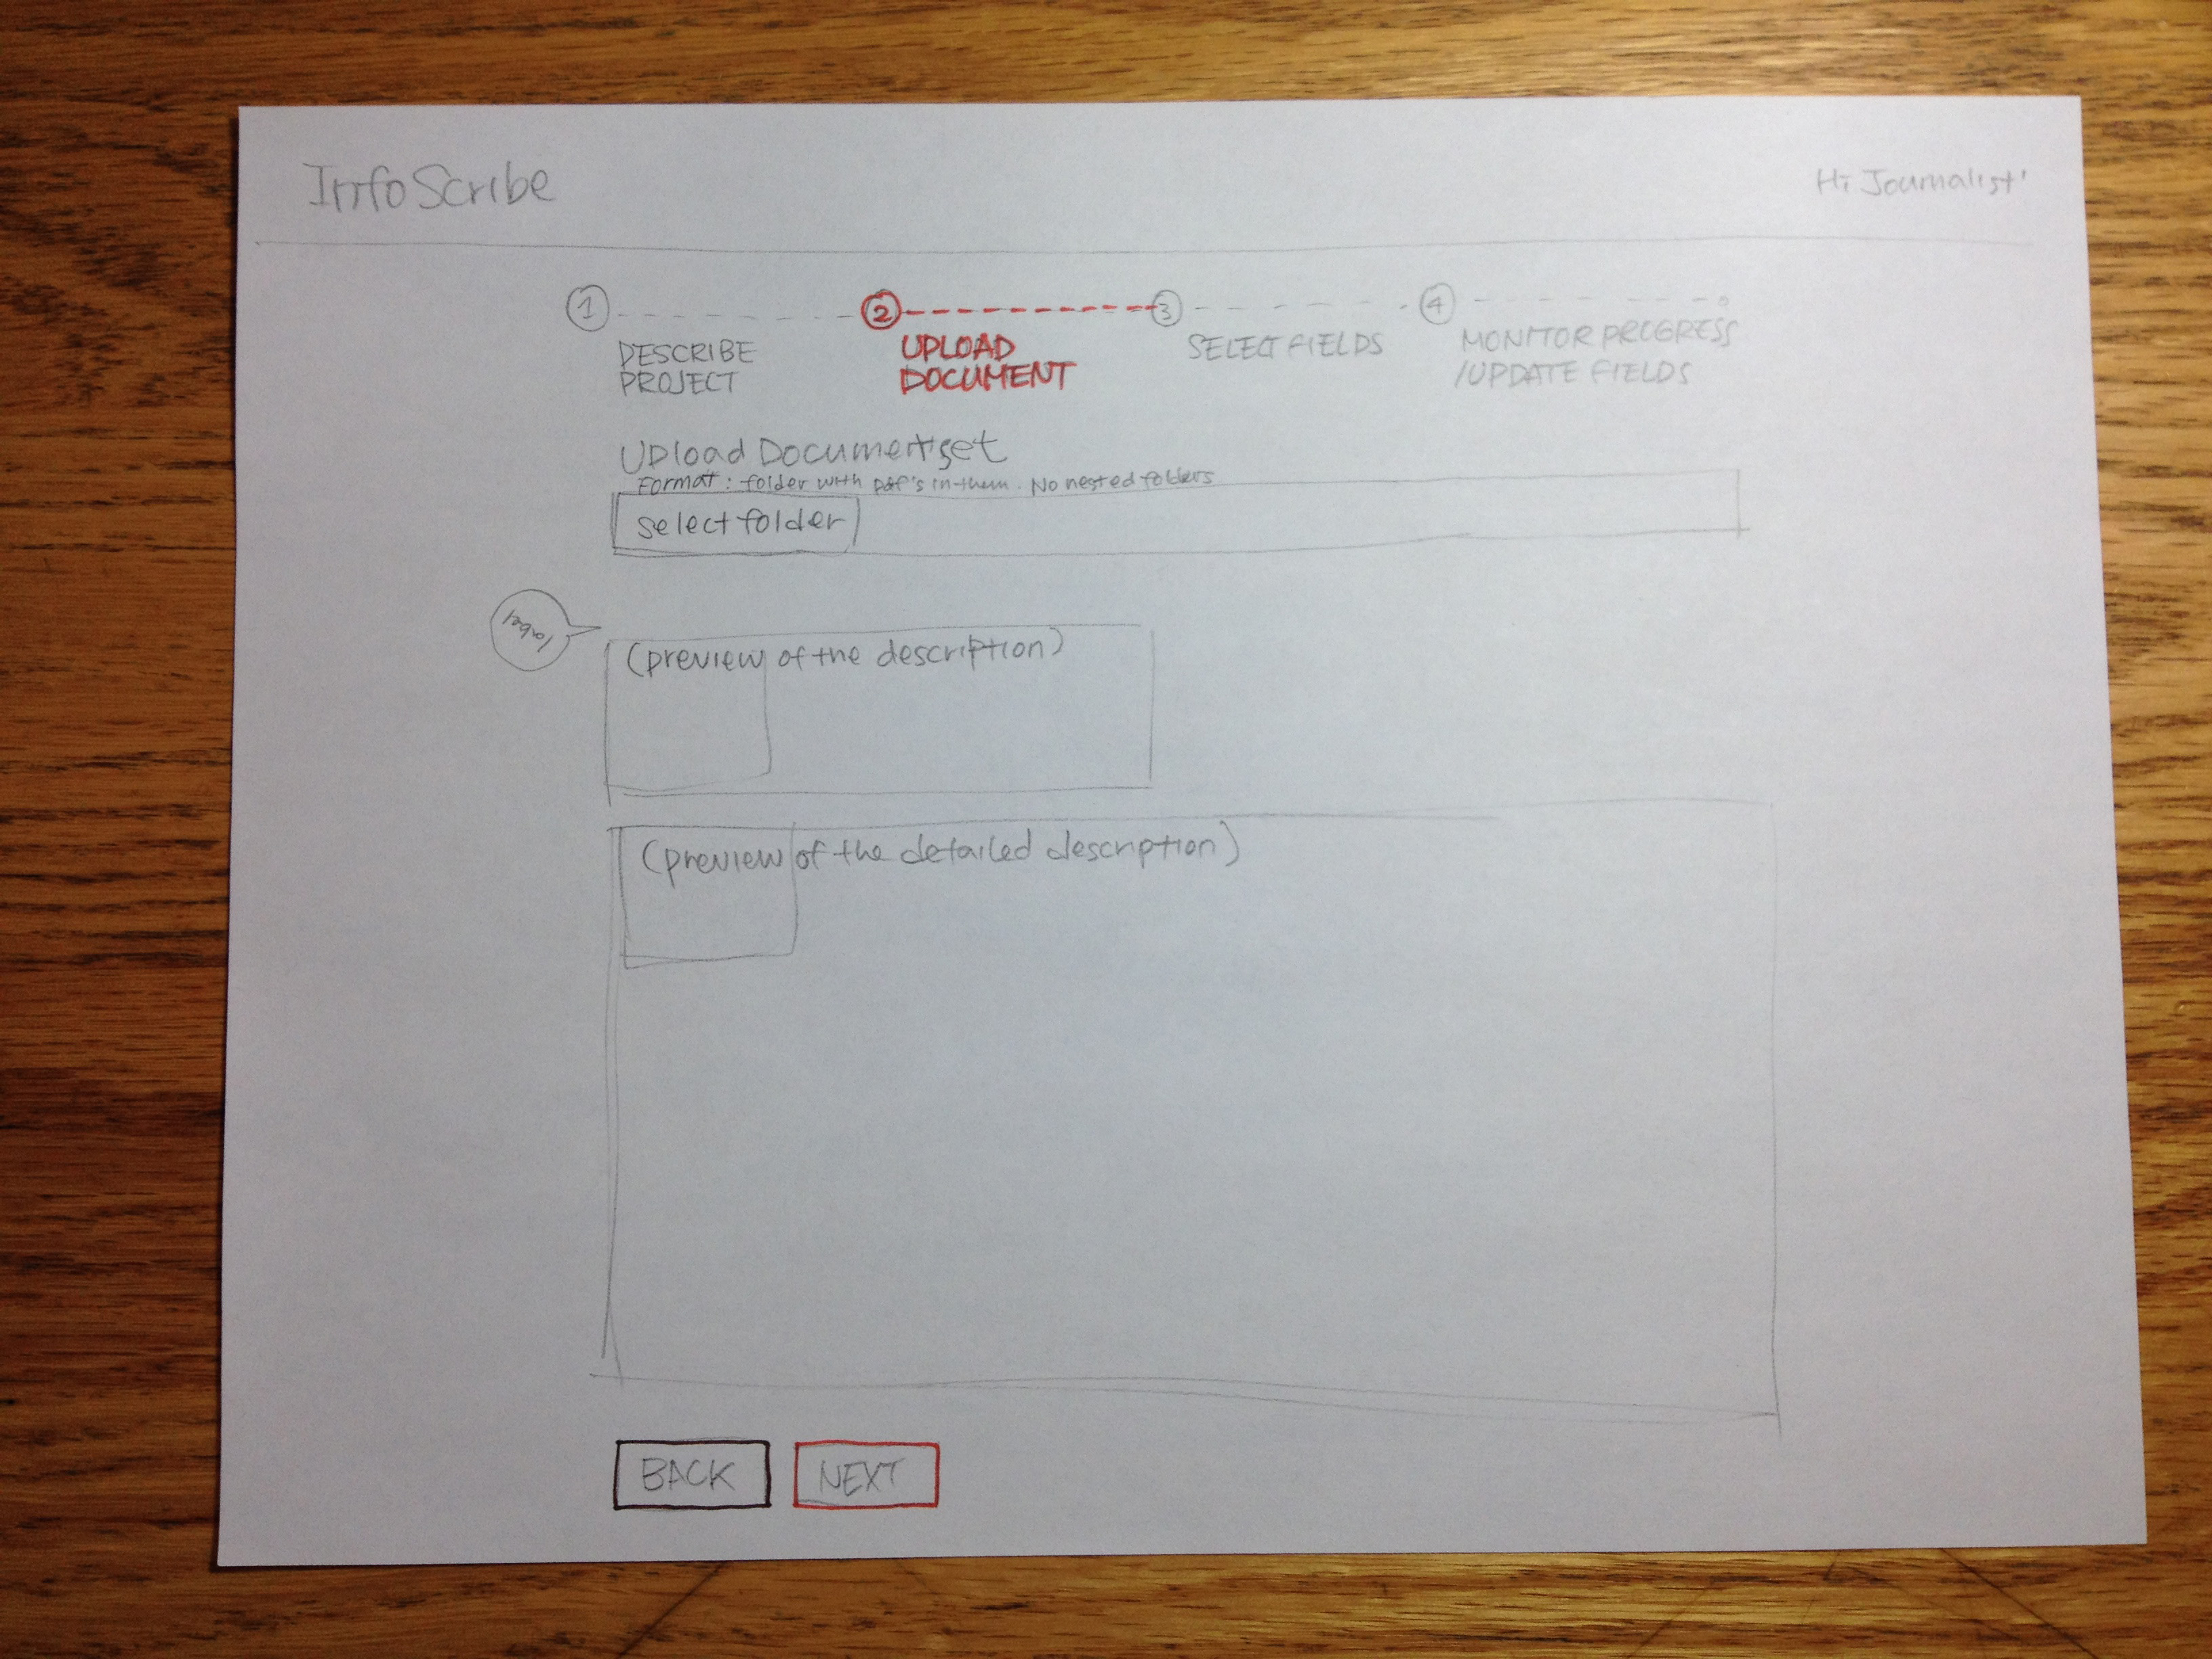 InfoScribe
Hi Journalist!
1 2 3 4
DESCRIBE
PROJECT
UPLOAD
DOCUMENT
SELECT FIELDS
MONITOR PROGRESS
/UPDATE FIELDS
Upload Document set
Format: folder with pdf's in them. No nested folders
select folder
label
(preview of the description)
(preview of the detailed description)
BACK
NEXT